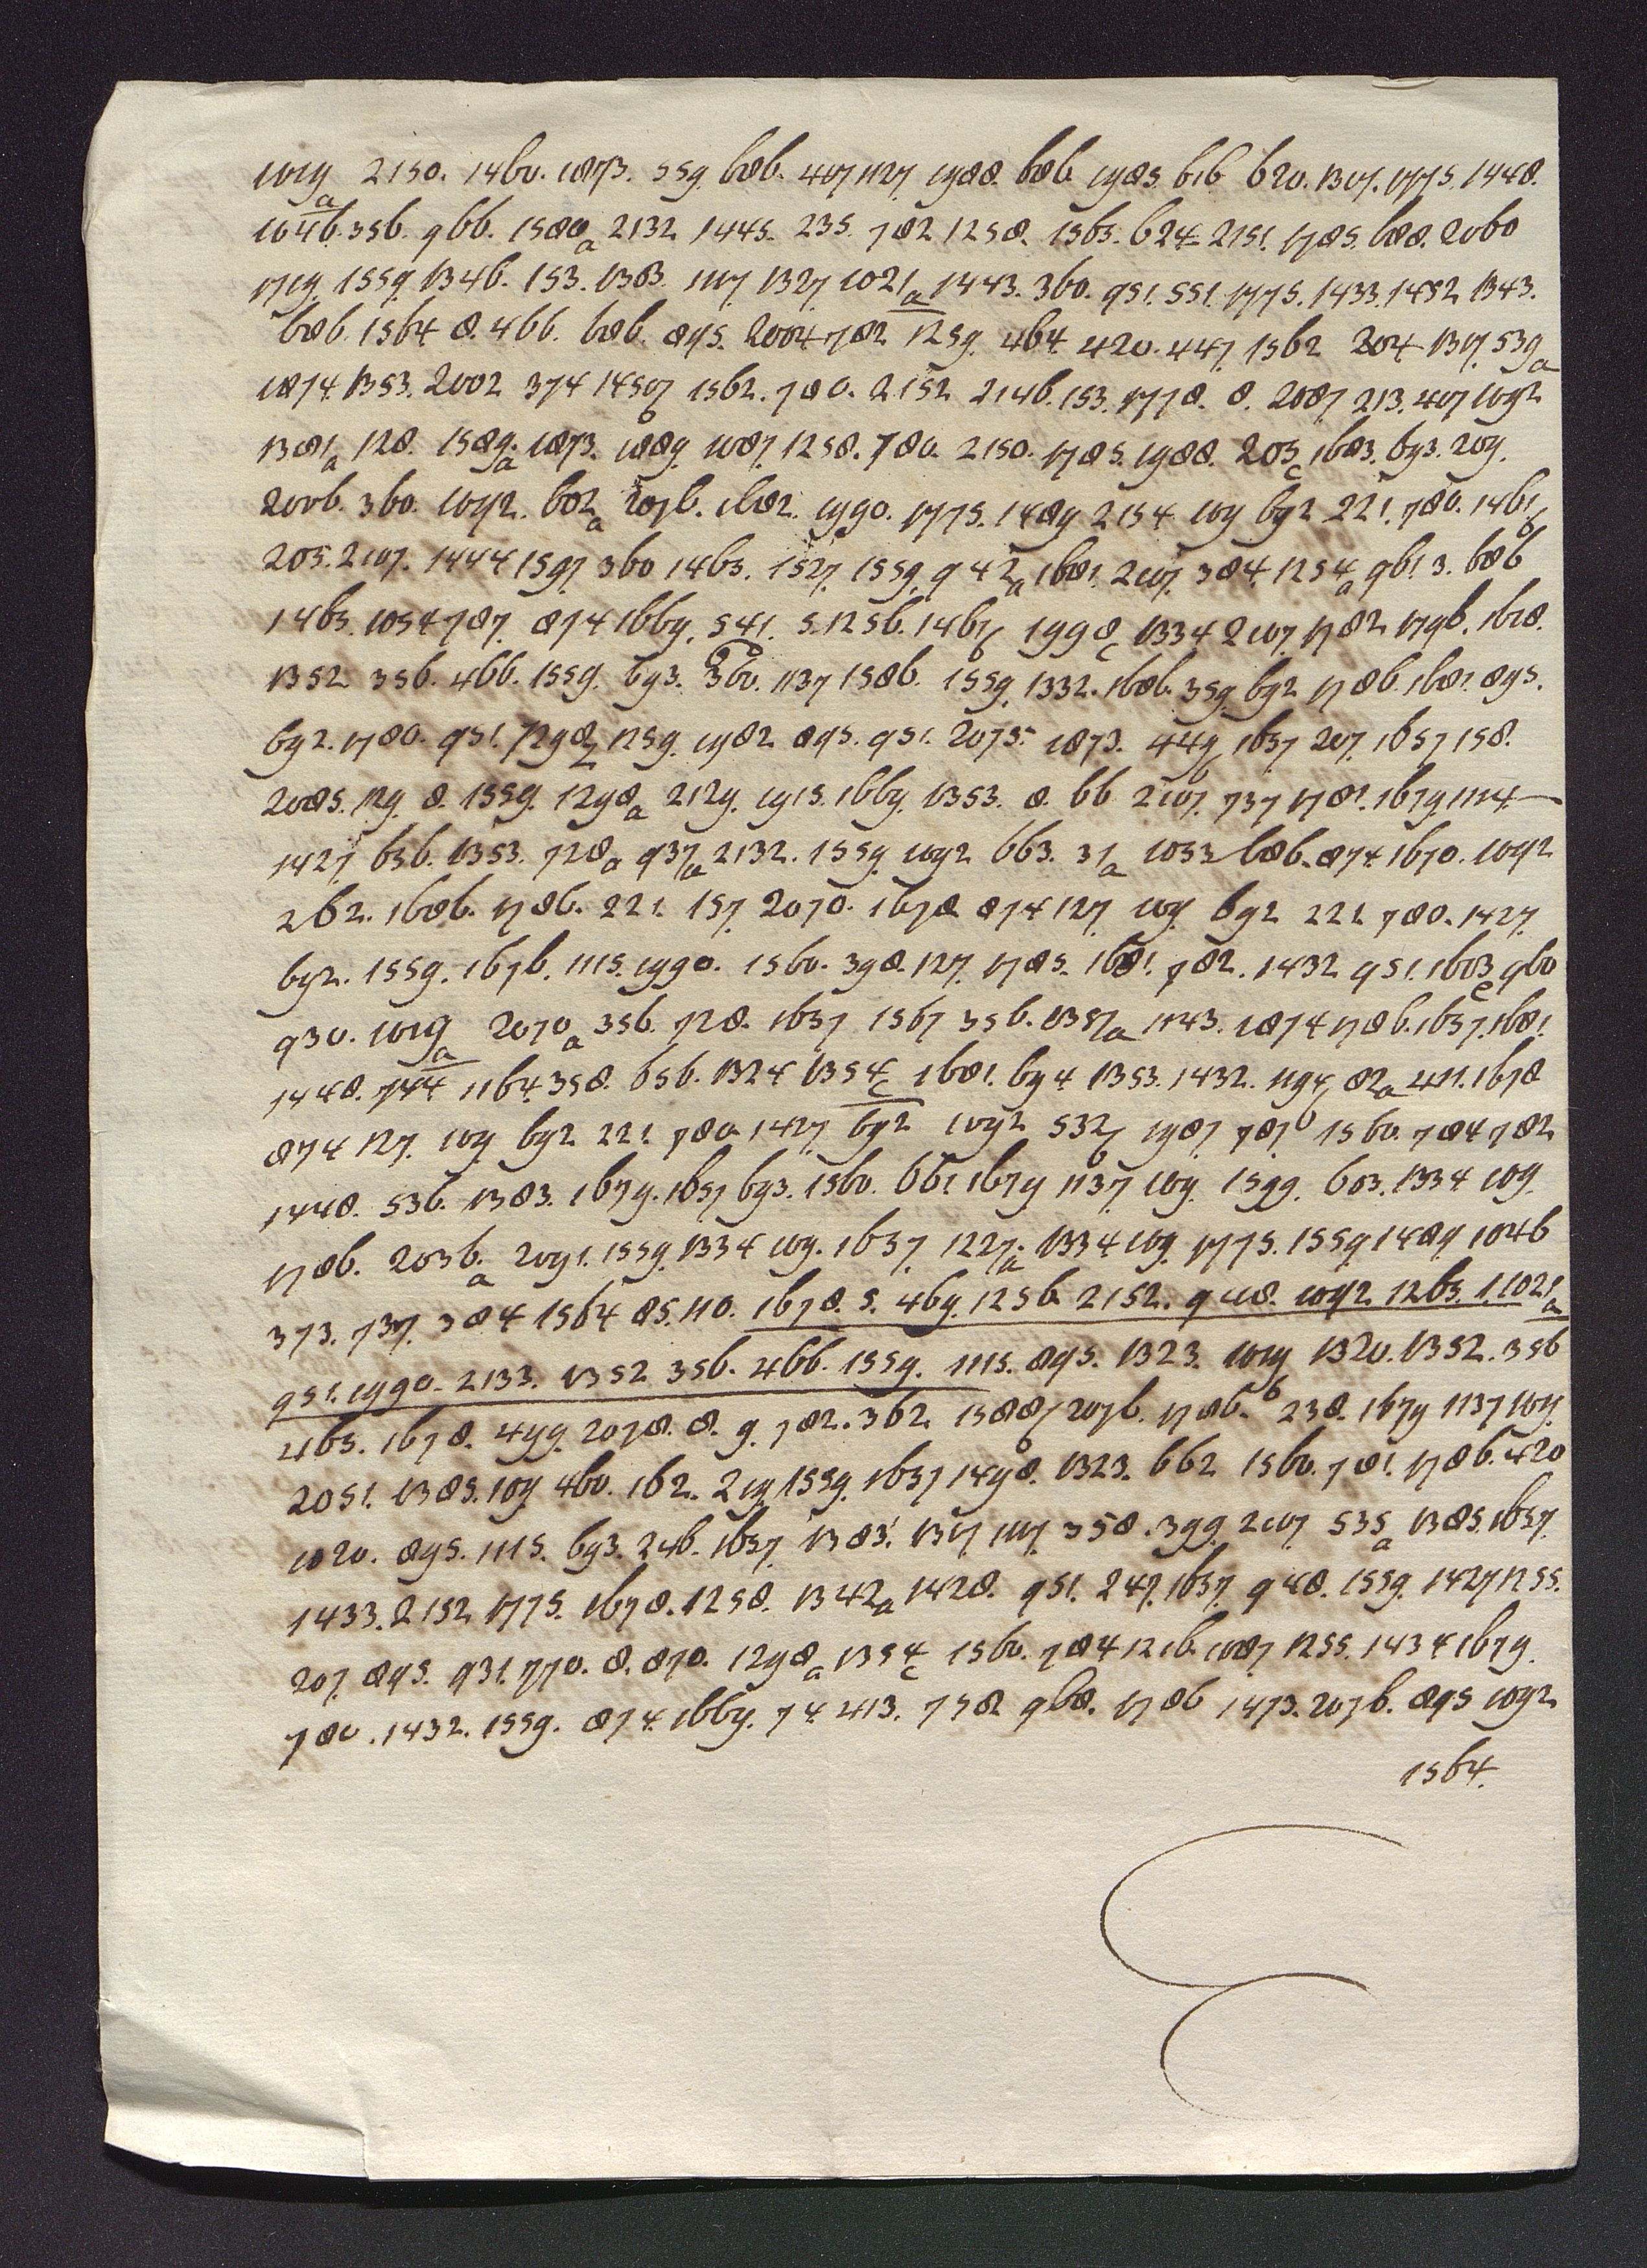 1019a 2150. 1460. 1873. 559. 686. 407 1127 1988. 686 1985. 616 620. 1307. 1775. 1448.
1046. 356. 966. 1580a 2132 1445. 235. 782 1258. 1565. 624 2151. 1785. 688. 2060
1719. 1559. 1346. 153. 1383. 1117. 1327 1021a 1443. 360. 951. 551. 1775. 1433. 1452 1343.
686. 1564 8. 466. 686. 895. 2004 782 1259. 464. 420. 447. 1562 204 1317. 539a
1874. 1353. 2002 374 1450b 1562. 780. 2152 2146. 153. 1778. 8. 2087 213. 407 1092
1381a 128. 1589.a 1873. 1889. 1087. 1258. 780. 2150. 1785. 1988. 205c 1683. 693. 209.
2006. 360. 1092. 602a 2076. 1682. 1990. 1775. 1489 2154 109 692 221. 780. 1461b
205. 2107. 1444 1597 360 1463. 1527. 1559. 942a 1681. 2107. 384. 1254a 961 3. 686
1463. 1054 787. 874 1669. 541. 5. 1256. 1461b 1998c 1334 2107 1782 1796. 1628.
1352 356. 466. 1559. 693. 360. 1137 1586. 1559. 1332. 1686. 359. 692 1786. 1681. 895.
692. 1780. 951. 1298a 1259. 1982 895. 951. 2075. 1873. 449b 1657 207. 1657 158.
2085. 129. 8. 1559. 1298a 2129. 1915. 1669 1353. 8. 66 2107. 737 1781. 1679 1114
1427. 636. 1353. 728a 937a 2132. 1559. 1092 663. 31a 1053 686. 874. 1670. 1092
262. 1686. 1786. 221. 157. 2070. 1678 874 127. 109. 692 221 780. 1427.
692. 1559. 1676. 1115. 1990. 1560. 398. 127. 1785. 1681. 782. 1432 951. 1603c 960
930. 1019a 2070a 356. 728. 1657 1567 356. 1357a 1143. 1874 1786. 1657. 1681.
1448. 744 1164. 358. 656. 1324 1354c 1681. 694 1353. 1432. 1194b 82a 411. 1678
874 127. 109 692 221 780 1427 692 1092 532b 1987 787 1560. 784 782
1448. 536. 1383. 1679. 1657 693. 1560. 661 1679 1137 109. 1599. 603. 1334 109
1786. 2036.a 2091. 1559. 1334 109. 1657. 1227.a 1334 109 1775. 1559 1489 1046
373. 737. 384 1564 85. 110. 1678. 5. 469. 1256 2152. 948. 1092 1265. 1. 1021a
951. 1990. 2133. 1352 356. 466. 1559. 1115. 895. 1323. 1019 1320. 1352. 356
465. 1678. 499. 2078. 8. 9. 782. 362 1588b 2076. 1786. 238. 1679 1137 109.
2051. 1385. 109 460. 162. 219 1559. 1657 1498. 1323. 662 1560. 781. 1786. 420
1020. 895. 1115. 693. 246. 1657. 1383. 1317. 1117. 358. 399. 2107 535a 1385. 1657.
1433. 2152 1775. 1678. 1258. 1342a 1428. 951. 247. 1657. 948. 1559. 1427 1255.
207. 895. 931. 770. 8. 870. 1298a 1354c 1560. 784 1216. 1087 1255. 1434 1679.
780. 1432. 1559. 874. 1669. 74. 413. 758 968. 1786 1473. 2076. 895 1092
1564.